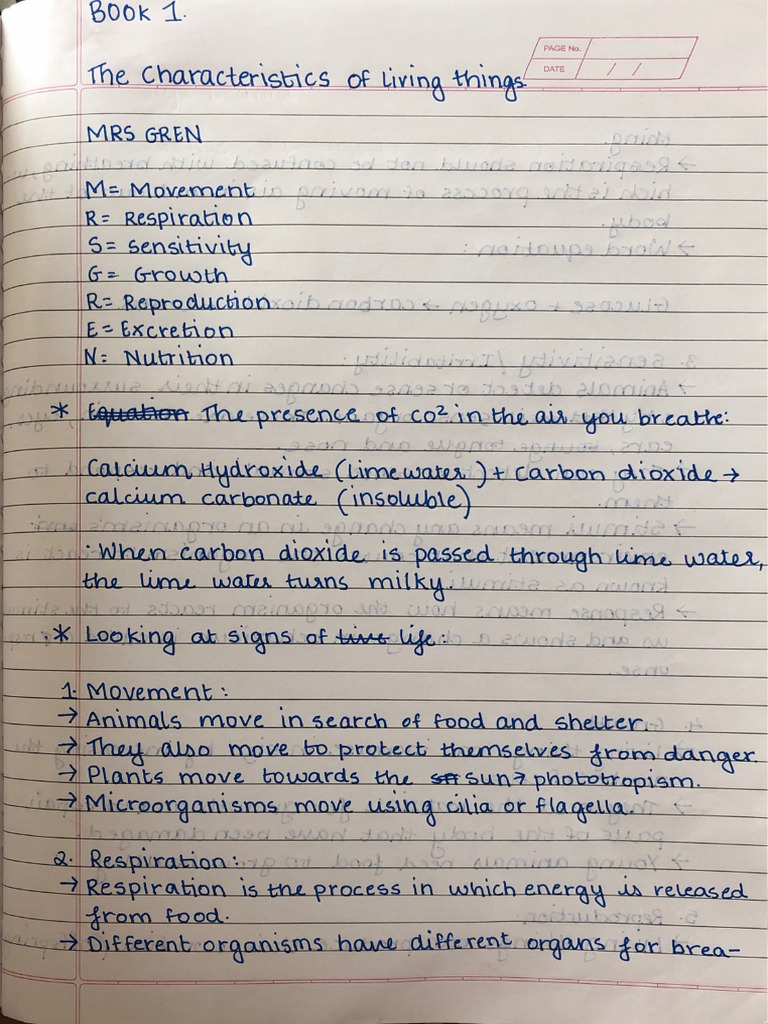 BOOK 1.
PAGE No.
DATE / /
The Characteristics of Living things.
MRS GREN
M= Movement
R= Respiration
S= sensitivity
G= Growth
R= Reproduction
E= Excretion
N= Nutrition
* Equation The presence of CO² in the air you breathe:
Calcium Hydroxide (lime water) + Carbon dioxide →
calcium carbonate (insoluble)
: When carbon dioxide is passed through lime water,
the lime water turns milky.
* Looking at signs of live life:
1. Movement:
→ Animals move in search of food and shelter.
→ They also move to protect themselves from danger.
→ Plants move towards the sun → phototropism.
→ Microorganisms move using cilia or flagella.
2. Respiration:
→ Respiration is the process in which energy is released
from food.
→ Different organisms have different organs for brea-